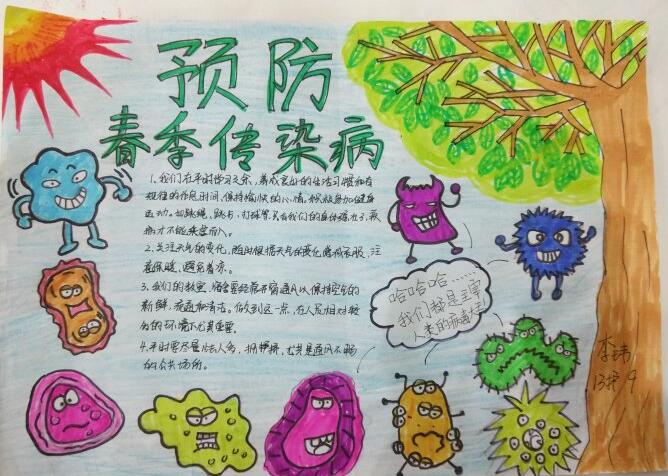 预防
春季传染病
1、我们在平时学习之余，养成良好的生活习惯和有
规律的作息时间，保持愉快的心情，积极参加健身
运动，如跳绳、跑步、打球等。只有我们的身体强壮了，疾
病才不能乘虚而入。
2、关注天气的变化，随时根据天气变化增减衣服，注
意保暖、避免着凉。
3、我们的教室、宿舍要经常开窗通风以保持空气的
新鲜、流通和清洁。做到这一点，在人员相对较
的环境下尤其重要。
4、平时要尽量少去人多、拥挤、尤其是通风不畅
的公共场所。
哈哈哈……
我们都是主宰
人类的病毒大王
李玮
13护9